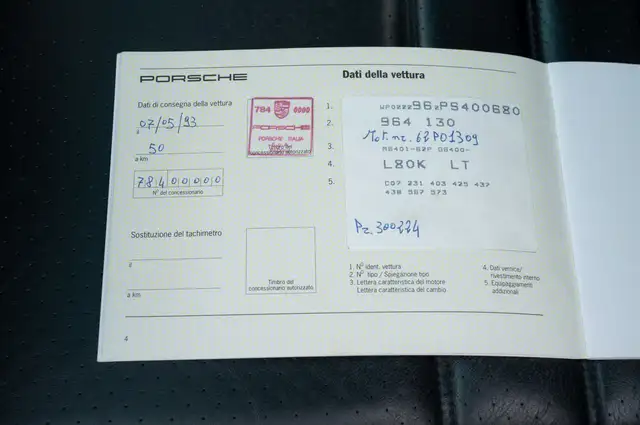 PORSCHE
Dati della vettura
Dati di consegna della vettura
07/05/93
il
50
a km
784 00000
N° del concessionario
784 0000
PORSCHE
PORSCHE ITALIA
1.
2.
3.
4.
5.
WP0ZZZ96ZPS400680
964 130
Mot. nr. 62P01309
M6401-62P G6400-
L80K LT
C07 231 403 425 437
438 567 573
Pz. 300224
Sostituzione del tachimetro
il
a km
Timbro del
concessionario autorizzato
1. N° ident. vettura
2. N° tipo / Spiegazione tipo
3. Lettera caratteristica del motore
Lettera caratteristica del cambio
4. Dati vernice/
rivestimento interno
5. Equipaggiamenti
addizionali
4